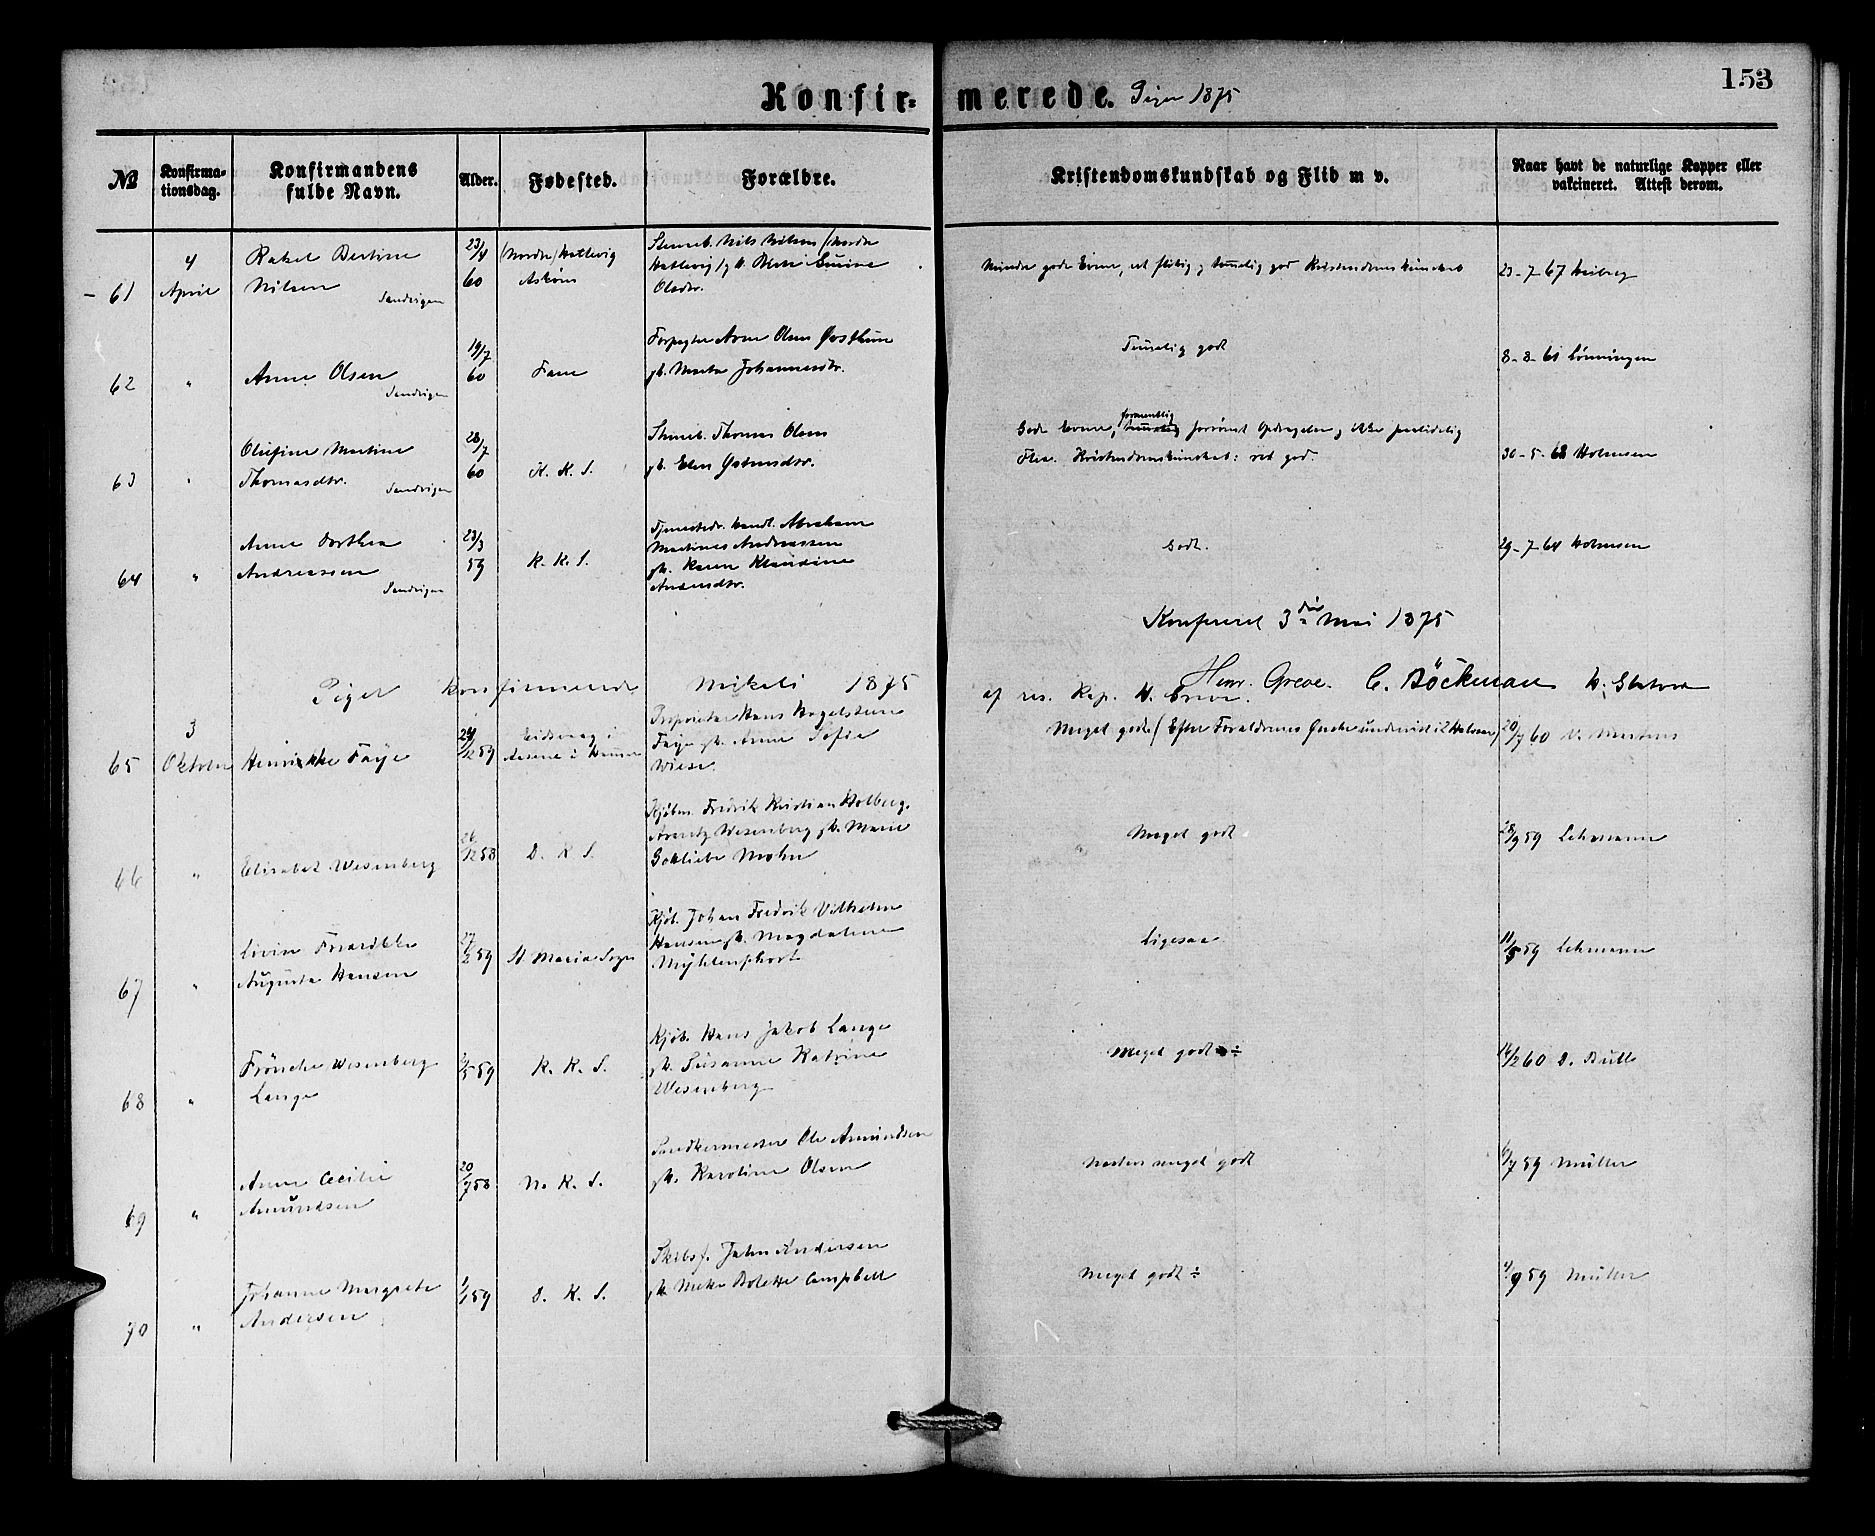 Konfir-merede. Piger 1875
153
№
Konfirma-
tionsdag.
Konfirmandens
fulde Navn.
Alder.
Fødested.
Forældre.
Kristendomskundskab og Flid m v.
Naar havt de naturlige Kopper eller
vakcineret. Attest derom.
61
4
April
Rakel Bertine
Nilsen
Sandvigen
23/4
60
(Nordre) Hatlevig
Askøen
Nils Nilsen (Nordre
Hatlevig) g.
Olsdr.
Mindre gode Evner, ret flittig, temmelig god Kristendomskundskab
23-7-67 Heiberg
62
"
Anne Olsen
Sandvigen
19/7
60
Fane
Forpagter Arne Olsen
gk. Marta Johannesdtr.
Temmelig godt
8-8-61 Lønningen
63
"
Olufine Martine
Thomasdtr.
Sandvigen
28/7
60
K. K. S.
Thomas Olsen
gk. Elen
Gode Evner, formentlig forsømt Opdragelse, ikke paalidelig
Flid. Kristendomskundskab: ret god.
30-5-62 Holmsen
64
"
Anne Dorthea
Andreassen
Sandvigen
23/3
59
K. K. S.
Abraham
Martinus Andreassen
gk. Karen Klaudine
29-7-64 Holmsen
Godt.
Konfereret 3die Mai 1875
Henr. Greve. C. Böckman
Piger Konfirmerede Mikeli 1875
af res. Kap. H. Greve.
65
3
Oktober
Henrikke Faye
24/12 59
Eidsvaag i
Aasene i Hammer
Proprietær Hans Hagelsteen
Faye gk. Anne Sofie
Wiese.
Meget godt (Efter Forældrenes Ønske undervist i
20/7 60
66
"
Elisabet Wesenberg
26/12 58
D. K. S.
Kjøbm. Fredrik Kristian Holberg
Arentz Wesenberg gk. Marie
Gotliebe Mohn
Meget godt
28/9 59 Lehmann
67
"
Augusta Hansen
27/2 59
St Maria Sogn
Kjøb. Johan Fredrik Vilhelm
Hansen gk. Magdalene
Mÿhlenphort
Ligesaa
11/5 59 Lehmann
68
"
Frönche Wesenberg
Lange
2/5 59
K. K. S.
Kjøb. Hans Jakob Lange
gk. Susanne Katrine
Wesenberg
Meget godt ÷
14/2 60 D. Bull
69
"
Anne Cecilie
Amundsen
20/7 58
N. K. S.
Ole Amundsen
gk. Karoline Olsen
Næsten meget godt
6/7 59 Müller
70
"
Johanne Margrete
Andersen
1/1 59
D. K. S.
Skibsf. John Andersen
gk. Meke Bolette Campbell
Meget godt ÷
4/9 59 Müller